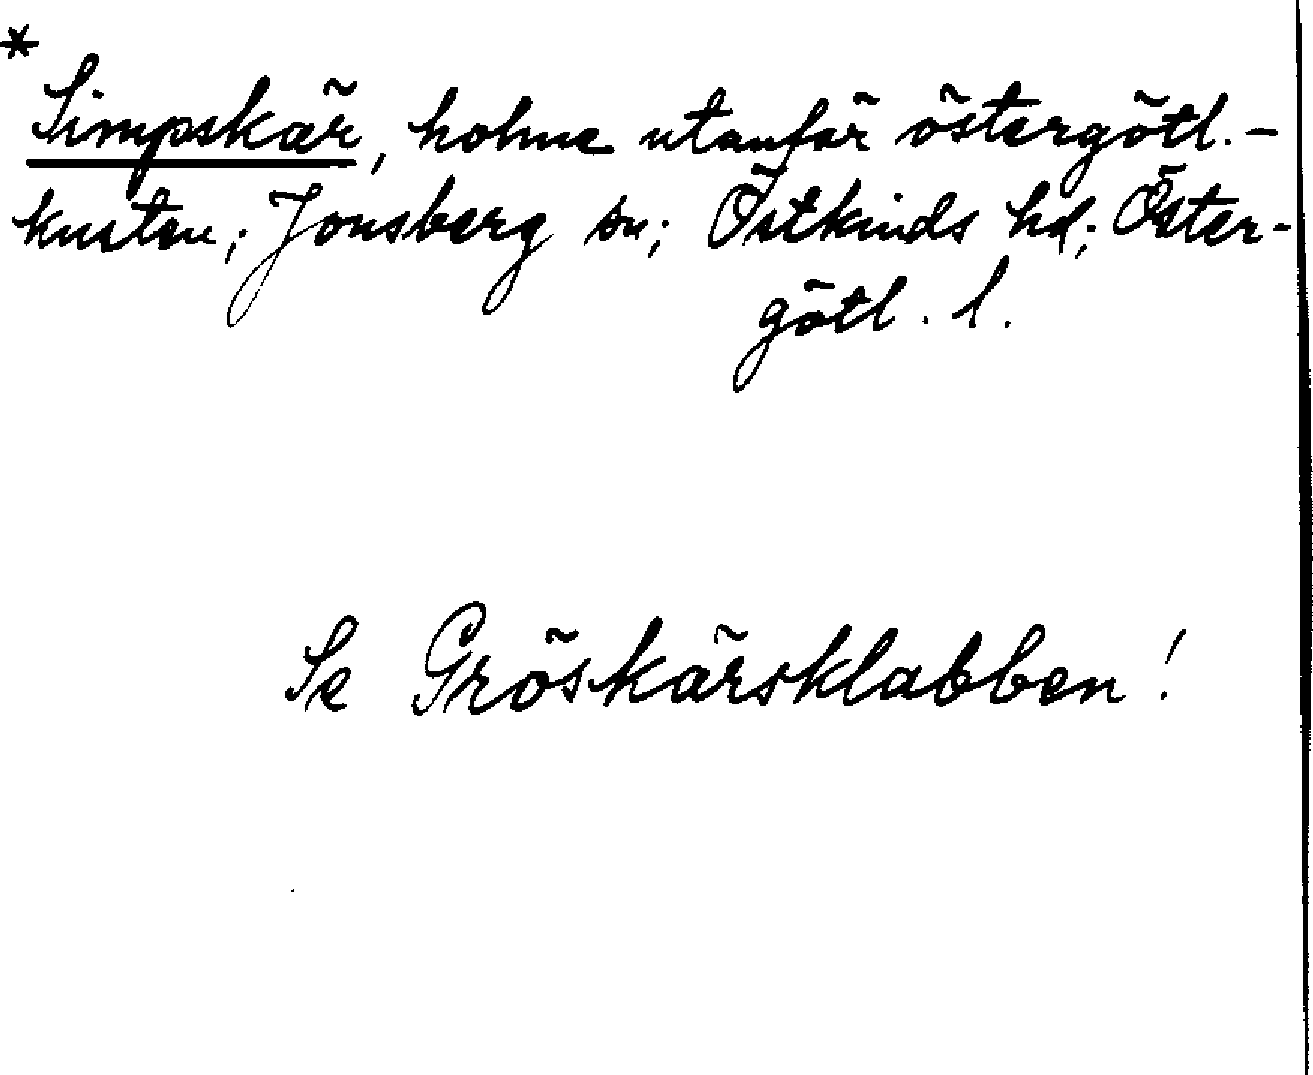 *
Simpskär, holme utanför östergötl.-
kusten; Jonsberg sn; Östkinds hd; Öster-
götl. l.
Se Gröskärsklabben!